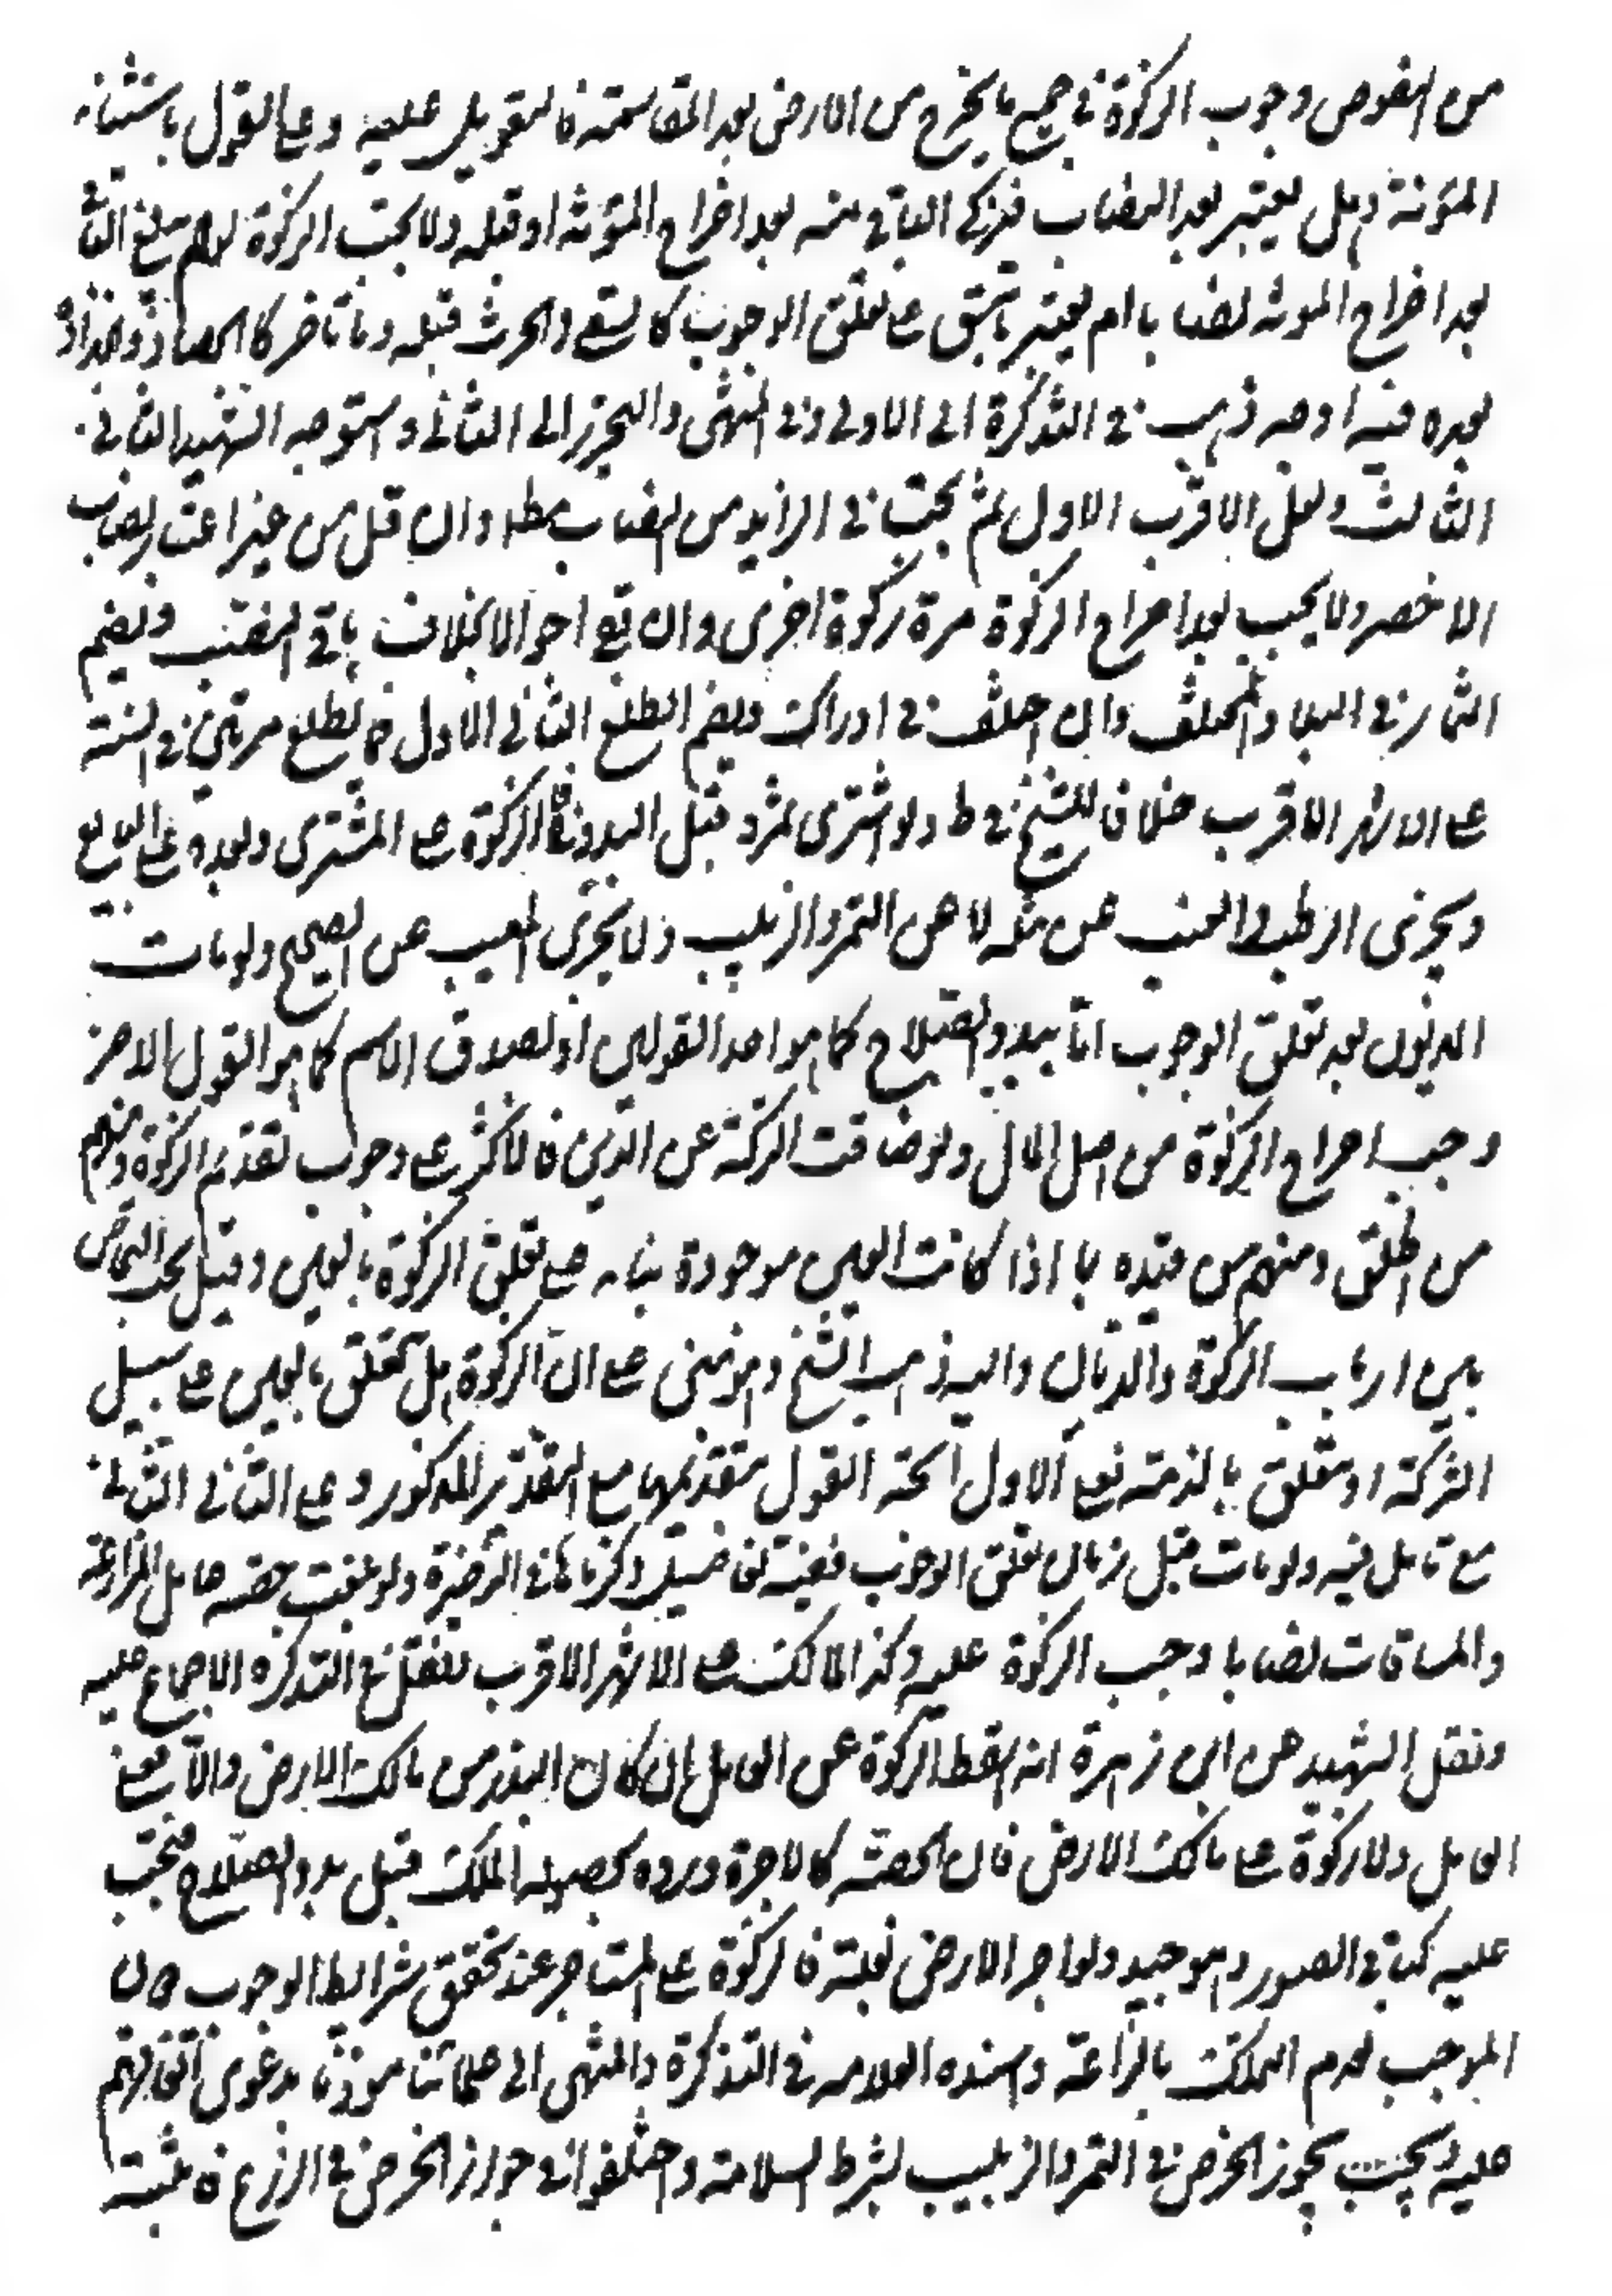 من النصوص وجوب الزكوة في جميع ما يخرج من الارض بعد المقاسمة فالتعويل عليه وعلى القول باستثناء
المؤنة هل يعتبر بعد النصاب فيزكى الباقي منه بعد اخراج المؤنة او قبله ولا يجب الزكوة لو لم يبلغ الباقي
بعد اخراج المؤنة نصابا ام يعتبر ما سبق على تعلق الوجوب كالسقي والحرث قبله وما تاخر كالحصاد والجذاذ
بعده فيه اوجه ذهب في التذكرة الى الاول وفي المنتهى والتحرير الى الثاني واستوجه الشهيد الثاني
الثالث ولعل الاقرب الاول ثم يجب في الزايد من النصاب مط وان قل من غير اعتبار نصاب
الاخر ولا يجب بعد اخراج الزكوة مرة زكوة اخرى وان بقي احوالا بخلاف باقي النصب ويضم
الثمار في البلاد المختلف وان اختلف في ادراك ويضم الطلع الثاني الاول فيما يطلع مرتين في السنة
على الاشهر الاقرب خلافا للشيخ في ط ولو اشترى ثمرة قبل البدو فالزكوة على المشتري وبعده على البايع
ويجزى الرطب والعنب عن مثله لا عن التمر والزبيب ولا يجزى المعيب عن الصحيح ولو مات
المديون بعد تعلق الوجوب اما ببدو الصلاح كما هو احد القولين او لصدق الاسم كما هو القول الاخر
وجب اخراج الزكوة من اصل المال ولو ضاقت التركة عن الدين فالاكثر على وجوب تقديم الزكوة ومنهم
من اطلق ومنهم من قيده بما اذا كانت العين موجودة بناء على تعلق الزكوة بالعين وقيل يجب التحاص
بين ارباب الزكوة والديان واليه ذهب الشيخ وهو مبنى على ان الزكوة هل تتعلق بالعين على سبيل
الشركة او يتعلق بالذمة فعلى الاول اتجه القول بتقديمها مع التقدير المذكور وعلى الثاني الثاني
مع تامل فيه ولو مات قبل زمان تعلق الوجوب ففيه تفاصيل ذكرناها في الذخيرة ولو بلغت حصة عامل المزارعة
والمساقات نصابا وجب الزكوة عليه وكذا المالك على الاشهر الاقرب بل نقل في التذكرة الاجماع عليه
ونقل الشهيد عن ابن زهرة انه اسقط الزكوة عن العامل ان كان البذر من مالك الارض والا فعلى
العامل ولا زكوة على مالك الارض فان الحصة كالاجرة ورده بحصول الملك قبل بدو الصلاح فتجب
عليه كباقي الصور وهو جيد ولو اجر الارض بغلة فالزكوة على المستاجر عند تحقق شرايط الوجوب فان
الموجب لعدم الملك بالزراعة واسنده العلامة في التذكرة والمنتهى الى علمائنا موذنا بدعوى اتفاقهم
عليه بحث يجوز الخرص في التمر والزبيب بشرط السلامة واختلفوا في جواز الخرص في الزرع فاثبته